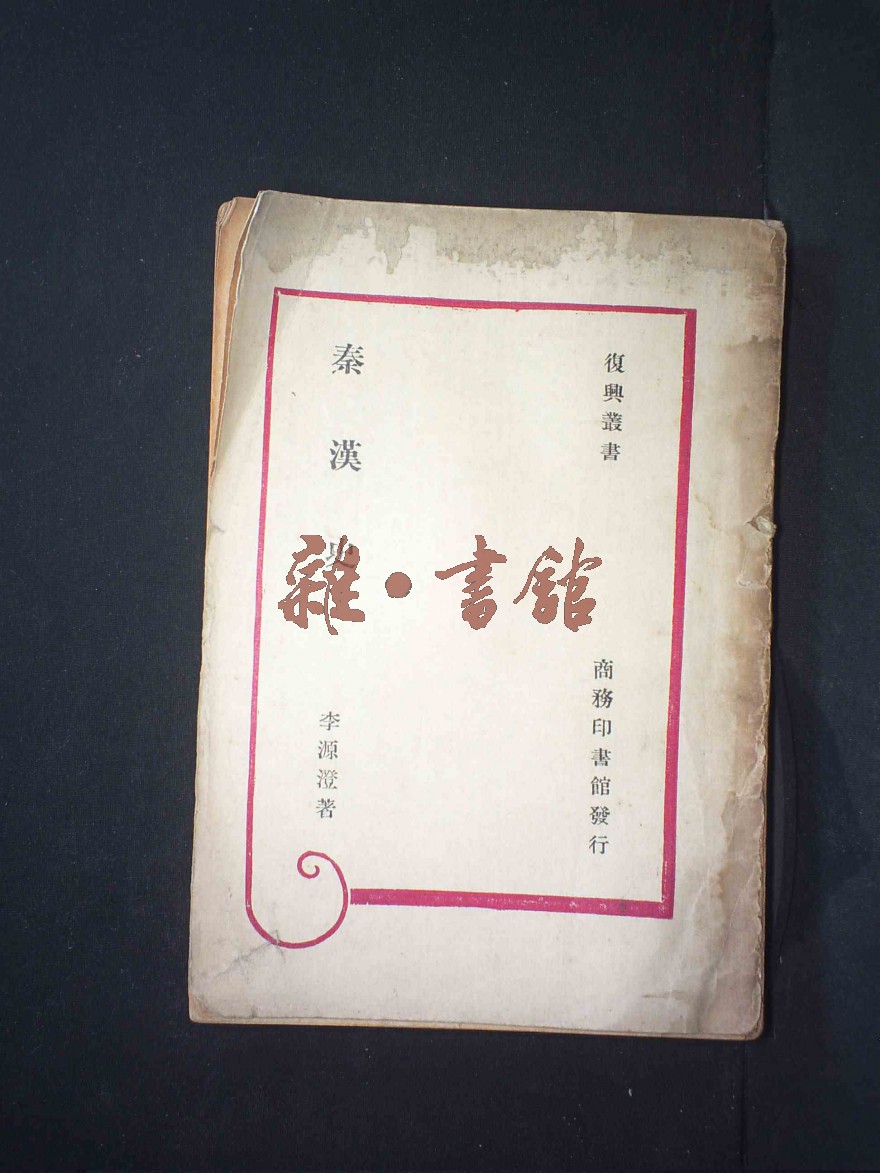 復興叢書
商務印書館發行
秦漢史
李源澄著
雜·書館